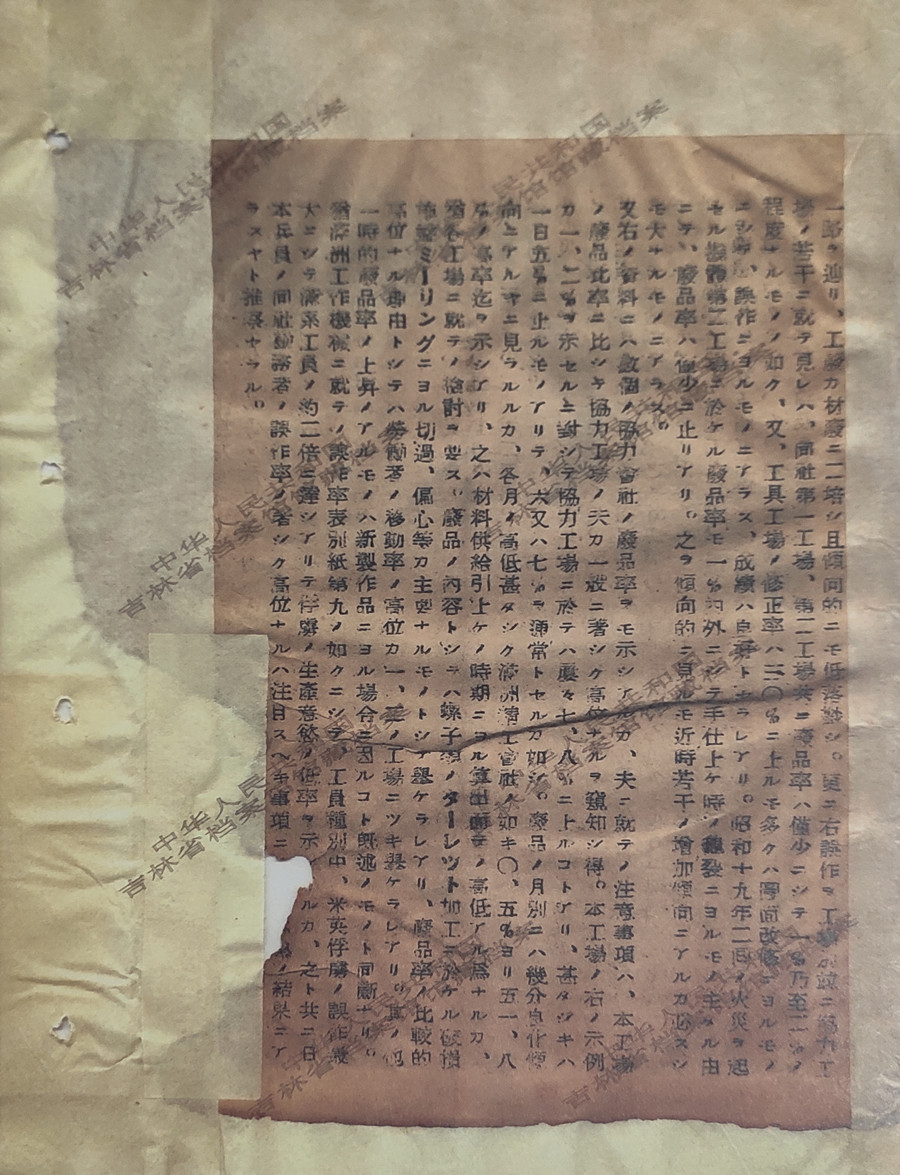 一路ヲ辿リ、工廢カ材廢ニ二培シ且傾向的ニモ低落勢シ。更ニ右誤作ヲ工場
場ノ若干ニ就テ見レハ、同社第一工場、第二工場共ニ廢品率ハ僅少ニシテ一%乃至二%ノ
程度ナルモノノ如ク、又、工具工場ノ修正率ハ二〇%ニ上ルモ多クハ圖面改修ニヨルモノ
ニシテ、誤作ニヨルモノニアラス、成績ハ良好トセラレアリ。昭和十九年二月ノ火災ヲ起
セル 第二工場ニ於ケル廢品率モ一%内外ニシテ手仕上ケ時ノ龜裂ニヨルモノ主ナル由
ニテ、廢品率ハ僅少ニ止リアリ。之ヲ傾向的ニ見ルモ近時若干ノ増加傾向ニアルカ必スシ
モ大ナルモノニアラス。
又右ノ資料ニハ數個ノ協力會社ノ廢品率ヲモ示シアルカ、夫ニ就テノ注意事項ハ、本工場
ノ廢品比率ニ比シテ協力工場ノ夫カ一般ニ著シク高位ナルヲ窺知シ得。本工場ノ右ノ示例
カ一、二%ヲ示セルニ對シテ協力工場ニ於テハ屢々七、八%ニ上ルコトアリ、甚タシキハ
一日五%ニ止ルモノアリテ、大又ハ七%ヲ通常トセルカ如シ。廢品ノ月別ニハ幾分良化傾
向ニアルヤニ見ラルルカ、各月ノ高低甚タシク滿洲 工會社ノ如キ〇、五%ヨリ五一、八
%ノ高率迄ヲ示シアリ、之ハ材料供給引上ケノ時期ニヨル算出 ノ高低アル爲ナルカ、
尚各工場ニ就テノ檢討ヲ要ス。廢品ノ内容トシテハ螺子類ノターレット加工ニ於ケル破損
ミーリングニヨル切過、偏心等カ主要ナルモノトシテ擧ケラレアリ、廢品率ノ比較的
高位ナル理由トシテハ勞働者ノ移動率ノ高位カ一、二ノ工場ニツキ擧ケラレアリ。其ノ他
一時的廢品率ノ上昇ノアルモノハ新製作品ニヨル場合ニ因ルコト既述ノモノト同斷ナリ。
尚滿洲工作機械ニ就テノ誤作率表別紙第九ノ如クニシテ、工員種別中、米英俘虜ノ誤作最
大ニシテ滿系工員ノ約二倍ニ達シアリテ俘虜ノ生産意慾ノ低率ヲ示 ルカ、之ト共ニ日
本兵員ノ同社勤務者ノ誤作率ノ著シク高位ナルハ注目スヘキ事項ニ ノ結果ニア
ラスヤト推察セラル。
中华人民共和国
吉林省档案馆馆藏档案